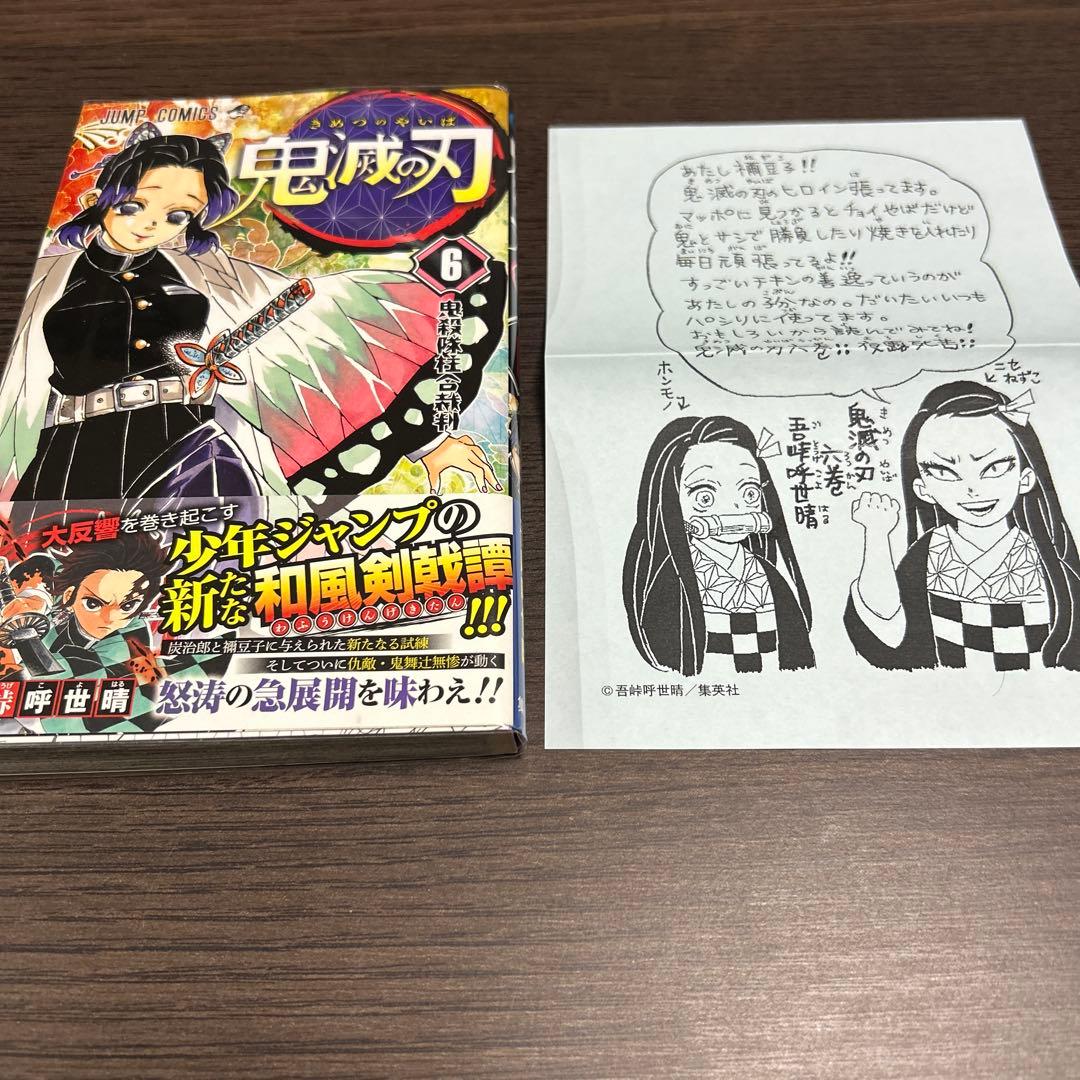 JUMP COMICS
きめつのやいば
鬼滅の刃
6
鬼殺隊柱合裁判
大反響を巻き起こす
少年ジャンプの
新たな和風剣戟譚!!!
わふうけんげきたん
炭治郎と禰豆子に与えられた新たなる試練
そしてついに仇敵・鬼舞辻無惨が動く
怒涛の急展開を味わえ!!
峠呼世晴
こよはる
あたし禰豆子!!
鬼滅の刃のヒロイン張ってます。
マッポに見つかるとチョイやばだけど
鬼とサシで勝負したり焼きを入れたり
毎日頑張ってるよ!!
すっごいチキンの善逸っていうのが
あたしの子分なの。だいたいいつも
パシリに使ってます。
おもしろいから読んでみてね!
鬼滅の刃六巻!!夜露死苦!!
ホンモノ
ニセねずこ
鬼滅の刃
きめつ やいば
六巻
ろっかん
吾峠呼世晴
ごとうげこよはる
©吾峠呼世晴/集英社